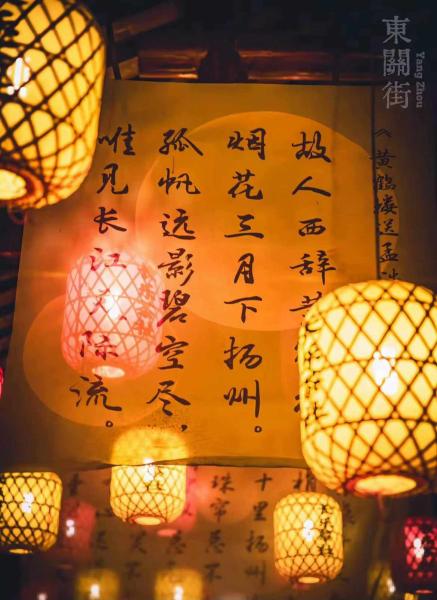 東關街
Yang Zhou
《黄鹤楼送孟
故人西辞
烟花三月下扬州。
孤帆远影碧空尽，
唯见长江天际流。
十里扬
珠帘总不